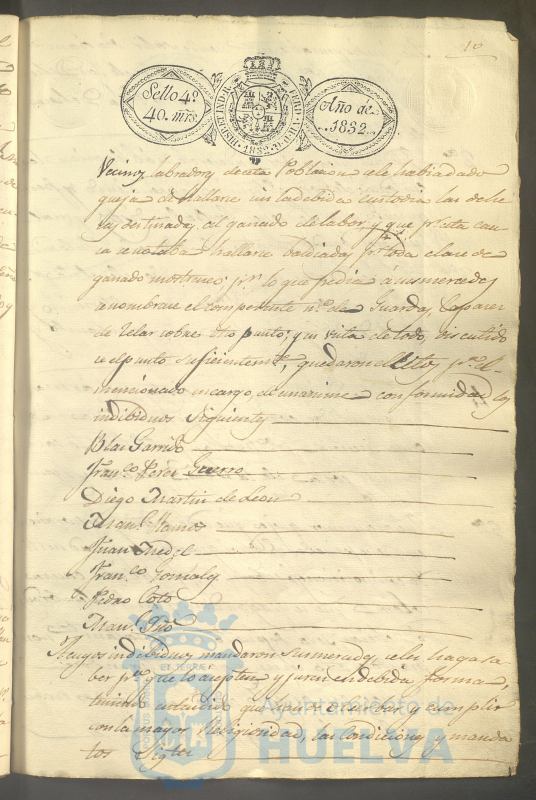 10
Sello 4º
40. mrs
HISPAN ET IND. R.
1832
Año de
1832
Vecinos labradores de esta Poblacion se le había dado
queja de hallarse indebida custodia las dehe
sas destinadas al ganado de labor, y que pr. esta cau
sa notaba hallarse baldiadas pr. toda clase de
ganado mostrenco; pr. lo que pedia á sus mercedes
nombrase el competente nº. de Guardas, capaces
de velar sobre dho punto; y en vista de todo, discutido
el punto suficientemte., quedaron electos pa. el
mencionado encargo, de unanime conformidad los
individuos siguientes
Blas Garrido
Franco. Perez Guerro
Diego Martin de Leon
Manl. Ramos
Juan
Franco. Gonzalez
Pedro Coto
Manl.
Cuyos individuos mandaron sus mercedes se les haga sa
ber pa. que lo acepten y juren en debida forma,
que han de observar y cumplir
con la mayor Religiosidad, las condiciones y manda
tos Sigtes
ET TERRAE
Ayuntamiento de
HUELVA